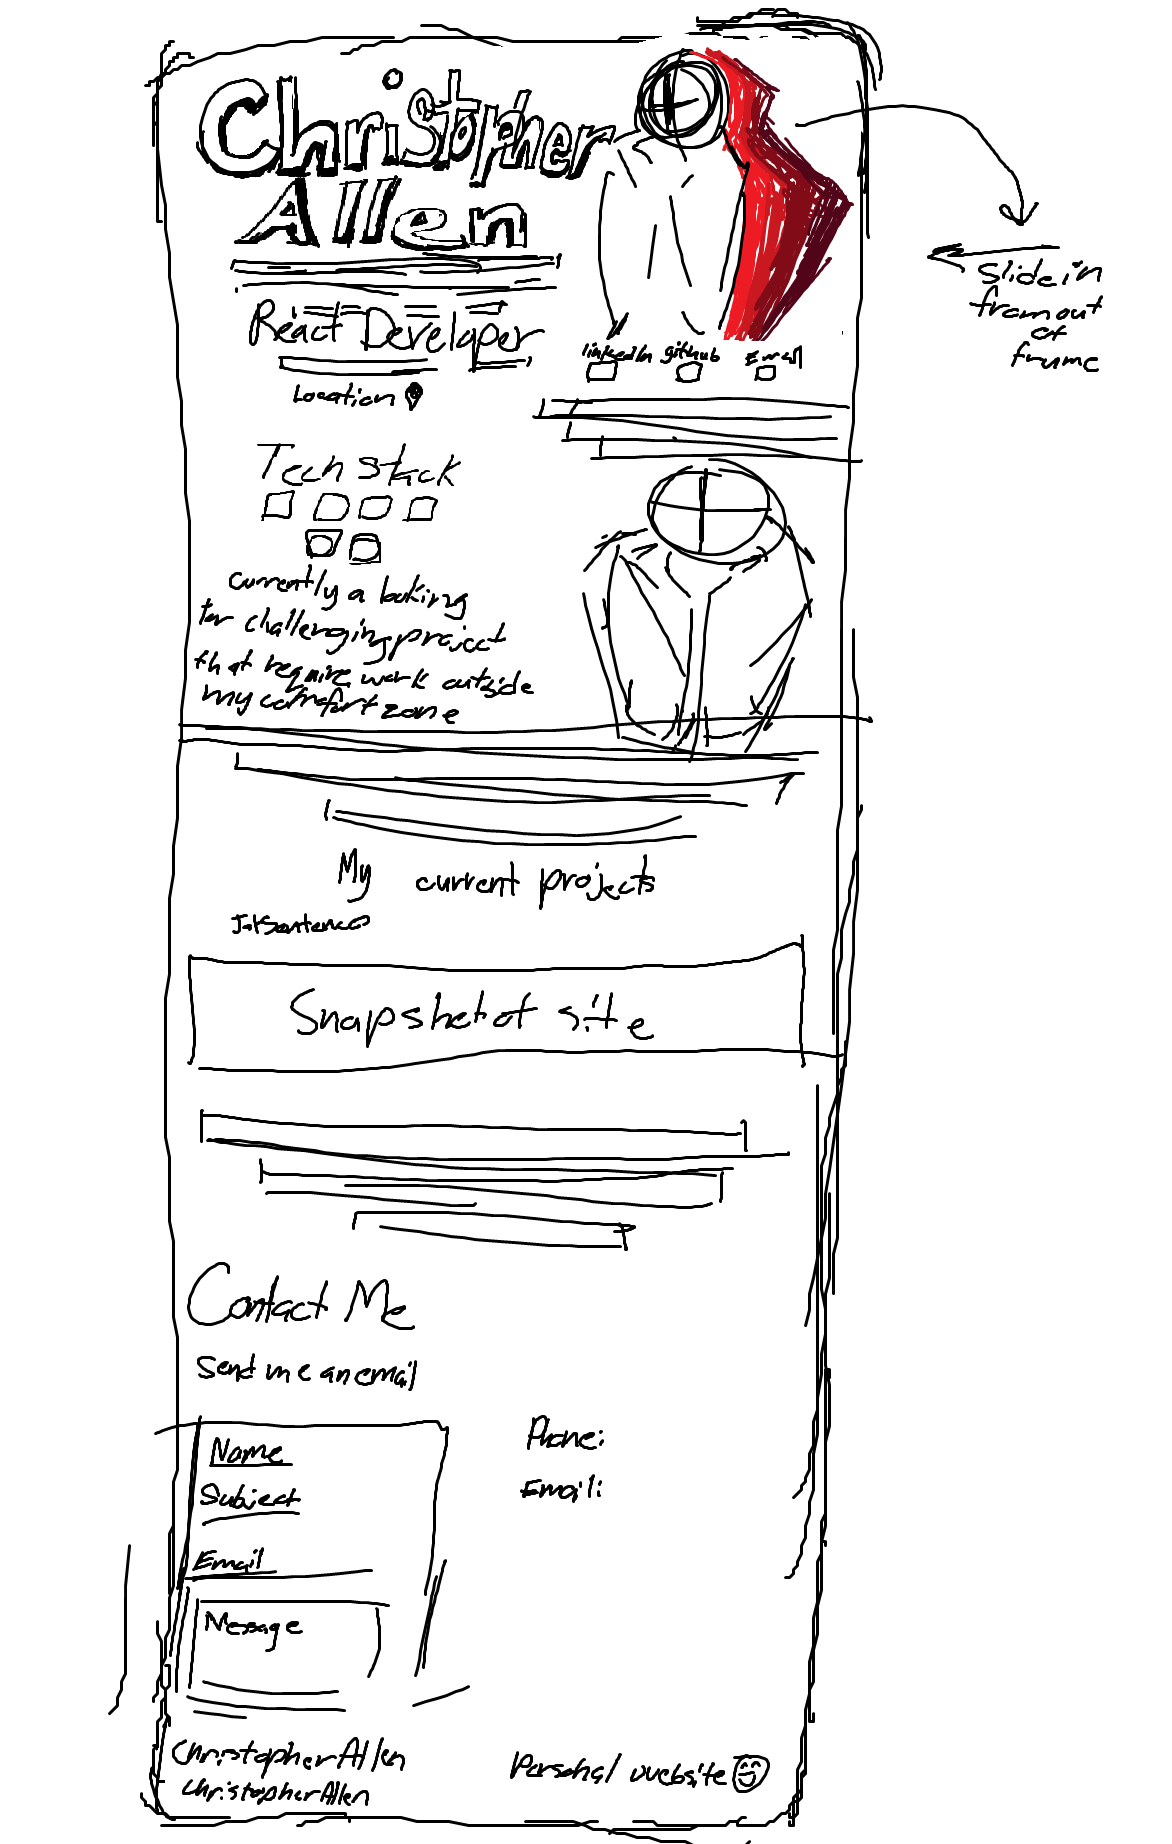 Christopher
Allen
React Developer
Location
linkedIn github Email
Slide in
from out
of
frame
Tech Stack
Currently a looking
for challenging project
that require work outside
my comfort zone
My current projects
Snapshot of site
Contact Me
Send me an email
Name
Subject
Email
Message
Phone:
Email:
Christopher Allen
Christopher Allen
Personal website